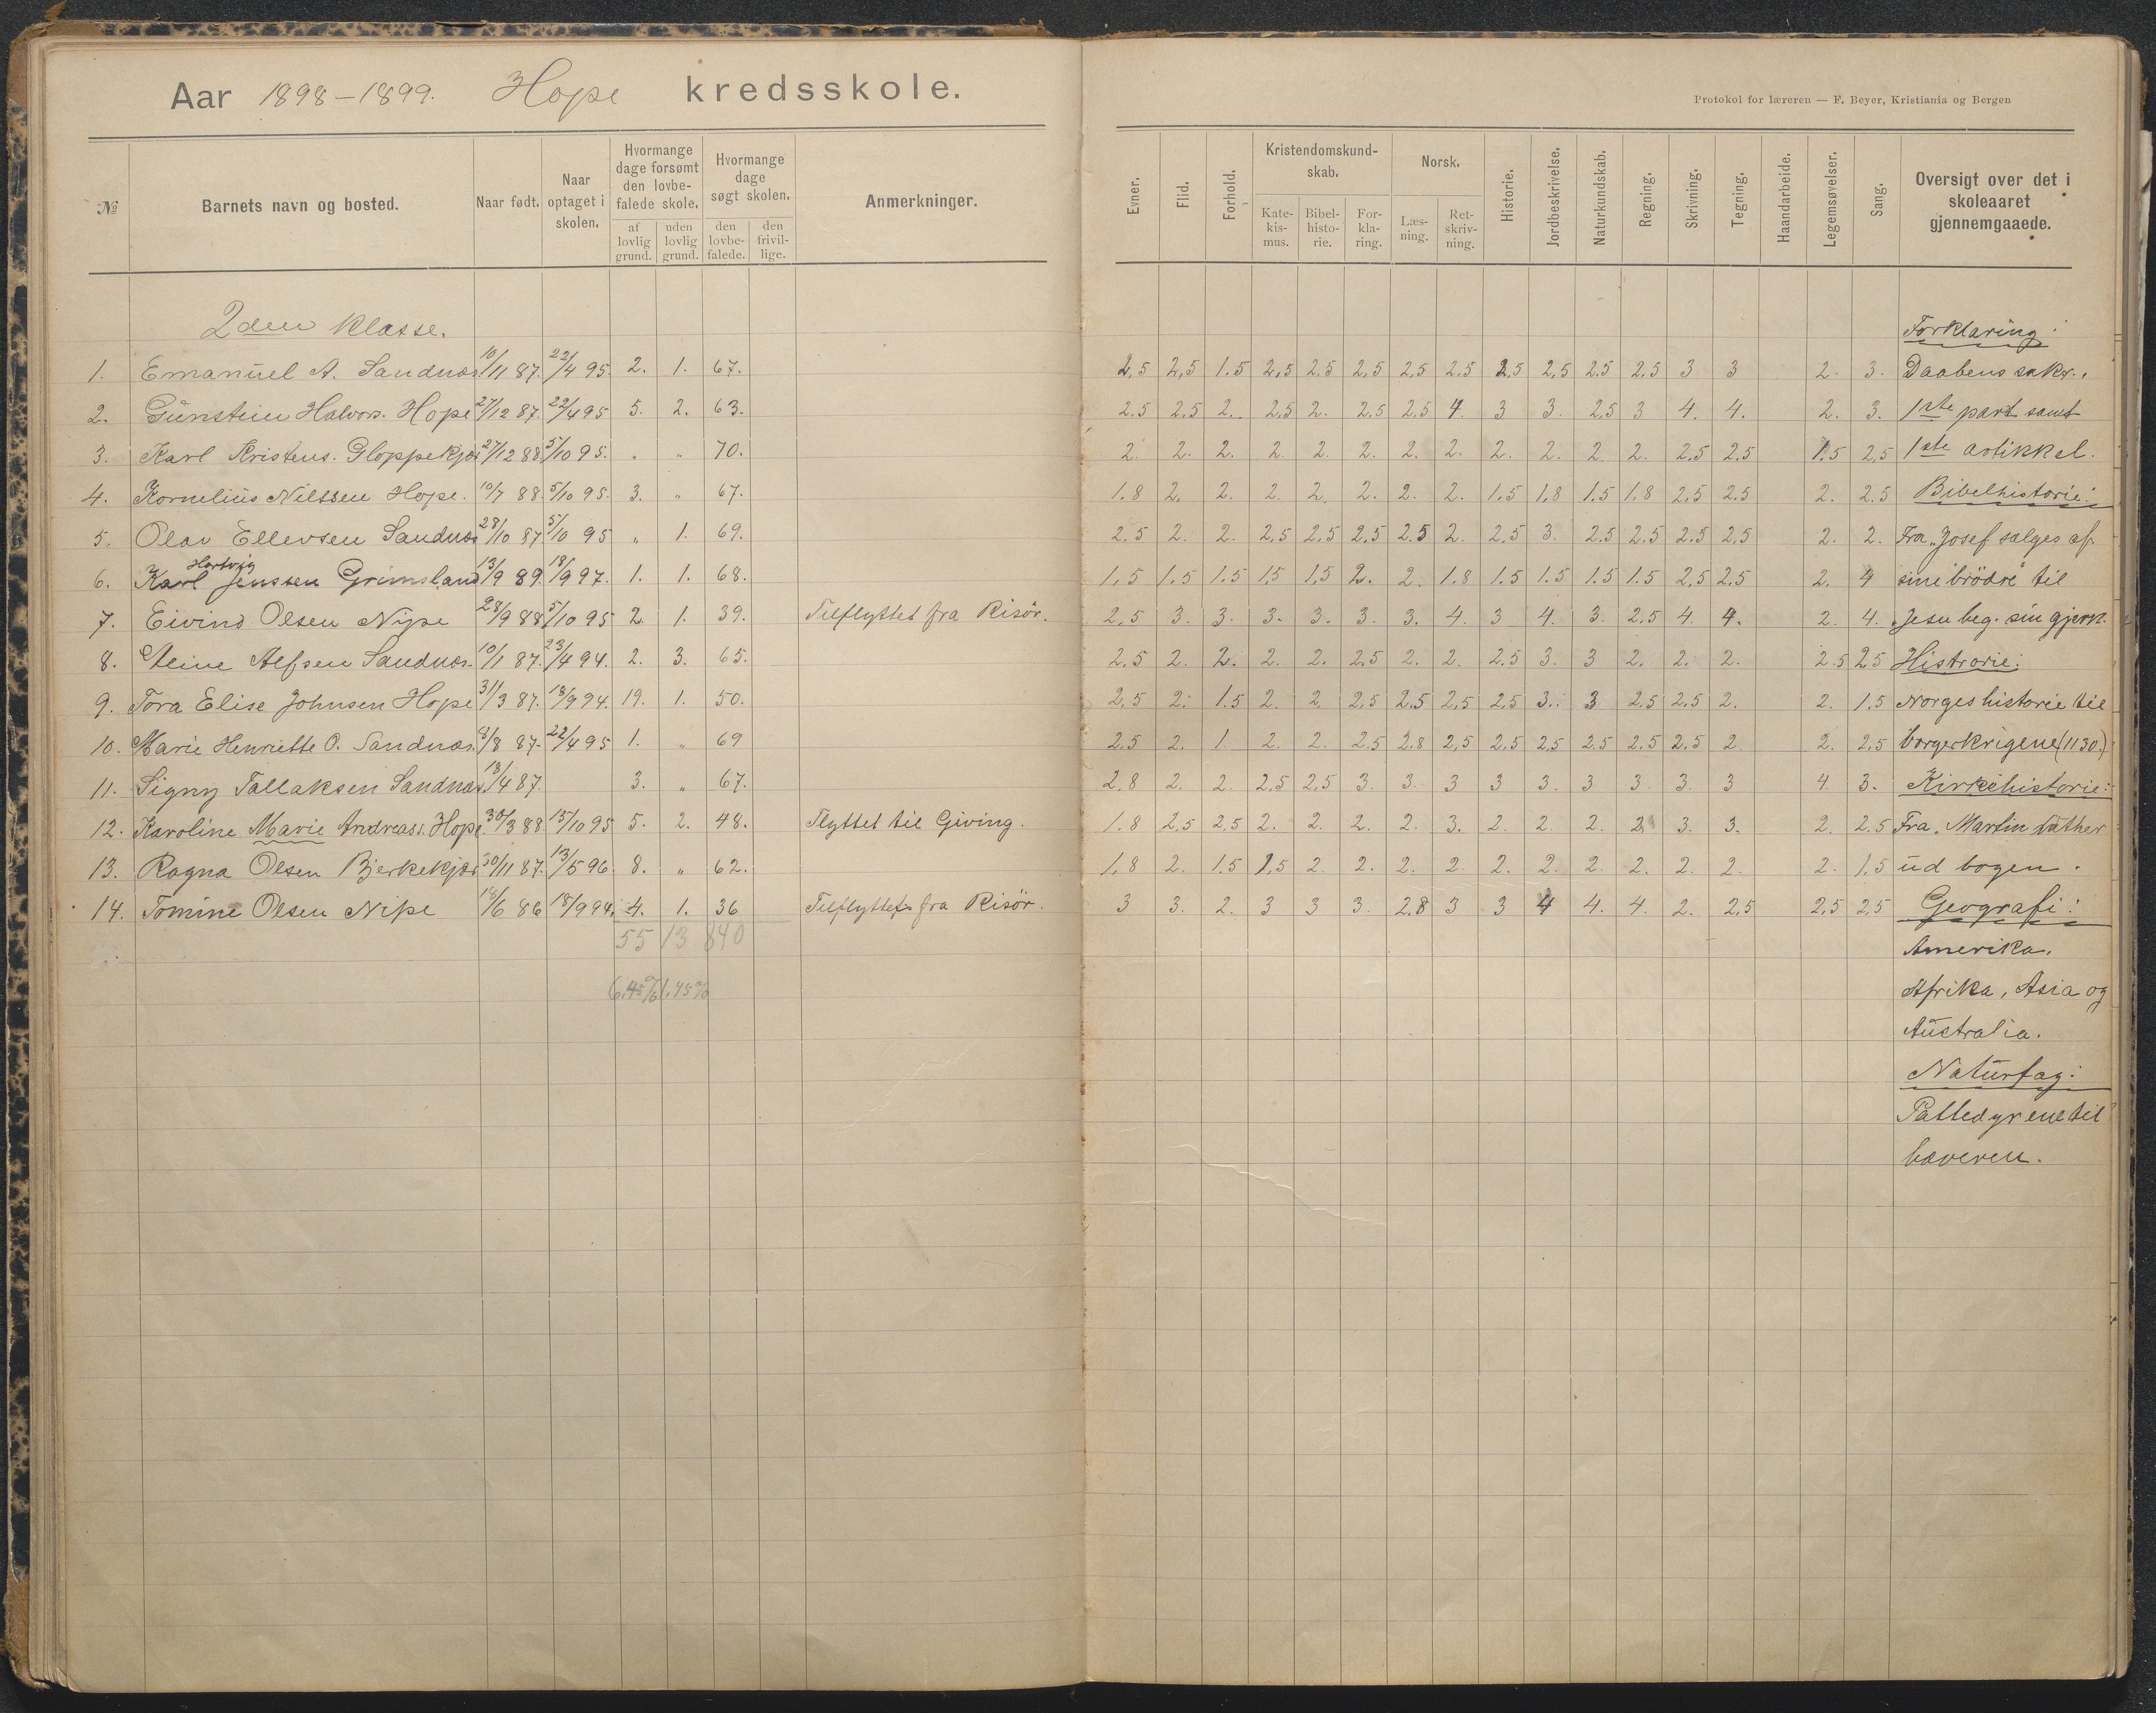 Aar 1898-1899. Hope kredsskole.
Protokol for læreren — F. Beyer, Kristiania og Bergen
№ Barnets navn og bosted. Naar født. Naar optaget i skolen. Hvormange dage forsømt den lovbefalede skole. af lovlig grund. uden lovlig grund. Hvormange dage søgt skolen. den lovbefalede. den frivillige. Anmerkninger.
Evner. Flid. Forhold. Kristendomskundskab. Katekismus. Bibelhistorie. Forklaring. Norsk. Læsning. Retskrivning. Historie. Jordbeskrivelse. Naturkundskab. Regning. Skrivning. Tegning. Haandarbeide. Legemsøvelser. Sang. Oversigt over det i skoleaaret gjennemgaaede.
2den klasse. Forklaring:
1. Emanuel A. Sandnæs. 10/11 87. 22/4 95. 2. 1. 67. 2,5 2,5 1.5 2,5 2.5 2,5 2,5 2.5 2.5 2,5 2.5 2.5 3 3 2. 3. Daabens sakr.,
2. Gunstein Halvors. Hope 27/12 87. 22/4 95 5. 2. 63. 2.5 2.5 2. 2,5 2. 2.5 2.5 4. 3 3. 2,5 3 4. 4. 2. 3. 1ste part samt
3. Karl Kristens. Gloppekjær 27/12 88. 5/10 95. " " 70. 2. 2. 2. 2. 2. 2. 2. 2. 2. 2. 2. 2. 2.5 2.5 1.5 2,5 1ste artikkel.
4. Kornelius Nilssen Hope. 10/7 88. 5/10 95. 3. " 67. 1.8 2. 2. 2. 2. 2. 2. 2. 1.5 1,8 1.5 1.8 2,5 2,5 2. 2.5 Bibelhistorie:
5. Olav Ellevsen Sandnæs 28/10 87. 5/10 95 " 1. 69. 2.5 2. 2. 2,5 2,5 2,5 2.5 2. 2,5 3. 2.5 2.5 2.5 2,5 2. 2. Fra „Josef sælges af
Hartvig
6. Karl Jenssen Grimsland 13/9 89. 18/9 97. 1. 1. 68. 1,5 1.5 1.5 1,5 1,5 2. 2. 1.8 1.5 1.5 1.5 1.5 2,5 2.5 2. 4 sine brödre" til
7. Eivind Olsen Nipe 28/9 88. 5/10 95 2. 1. 39. Tilflyttet fra Risör. 2,5 3. 3. 3. 3. 3. 3. 4. 3 4. 3. 2.5 4. 4. 2. 4. „Jesu beg. sin gjern.
8. Aline Alfsen Sandnæs. 10/1 87. 23/4 94. 2. 3. 65. 2.5 2. 2. 2. 2. 2,5 2. 2. 2.5 3. 3 2. 2. 2. 2.5 2,5 Historie:
9. Tora Elise Johnsen Hope 31/3 87. 18/9 94. 19. 1. 50. 2,5 2. 1.5 2. 2. 2,5 2.5 2,5 2,5 3. 3 2.5 2.5 2. 2. 1.5 Norges historie til
10. Marie Henriette O. Sandnæs. 8/8 87. 22/4 95 1. " 69 2.5 2. 1. 2. 2. 2.5 2.8 2,5 2.5 2,5 2.5 2.5 2.5 2 2. 2,5 borgerkrigene (1130.)
11. Signy Tallaksen Sandnæs. 18/4 87. 3. " 67. 2,8 2. 2. 2.5 2,5 3. 3. 3 3 3. 3. 3. 3. 3 4. 3. Kirkehistorie:
12. Karoline Marie Andreass. Hope. 30/3 88. 15/10 95 5. 2. 48. Flyttet til Giving. 1.8 2,5 2,5 2. 2. 2. 2. 3. 2. 2. 2. 2. 3. 3. 2. 2.5 Fra „Martin Luther
13. Ragna Olsen Bjerkekjær 30/11 87. 13/5 96. 8. " 62. 1,8 2. 1.5 1,5 2 2. 2. 2. 2. 2. 2. 2. 2. 2. 2. 1,5 ud bogen.
14. Tomine Olsen Nipe 18/6 86 18/9 94. 4. 1. 36 Tilflyttet fra Risör. 3 3. 2. 3 3 3. 2.8 3 3 4 4. 4. 2. 2,5 2,5 2,5 Geografi:
55 13 840 Amerika,
6.45% 1.45% Afrika, Asia og
Australia.
Naturfag:
Pattedyrene til
bæveren.